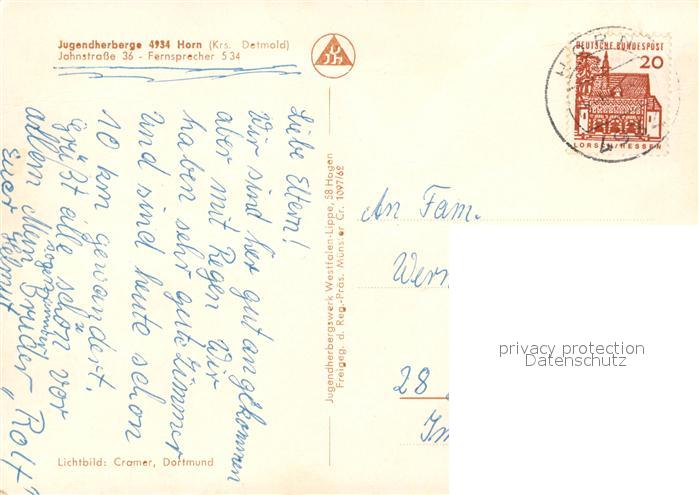 Jugendherberge 4934 Horn (Krs. Detmold)
Jahnstraße 36 - Fernsprecher 534
Liebe Eltern!
Wir sind hier gut angekommen
aber mit Regen Wir
haben sehr gute Zimmer
und sind heute schon
10 km gewandert.
Grüßt alle schön vor
allem Mein Bruder „Rolf"
euer Helmut
Lichtbild: Cramer, Dortmund
Jugendherbergswerk Westfalen-Lippe, 58 Hagen
Freigeg. d. Reg.-Präs. Münster Cr. 1097/62
DEUTSCHE BUNDESPOST
20
LORSCH/HESSEN
An Fam.
Wern
28
privacy protection
Datenschutz